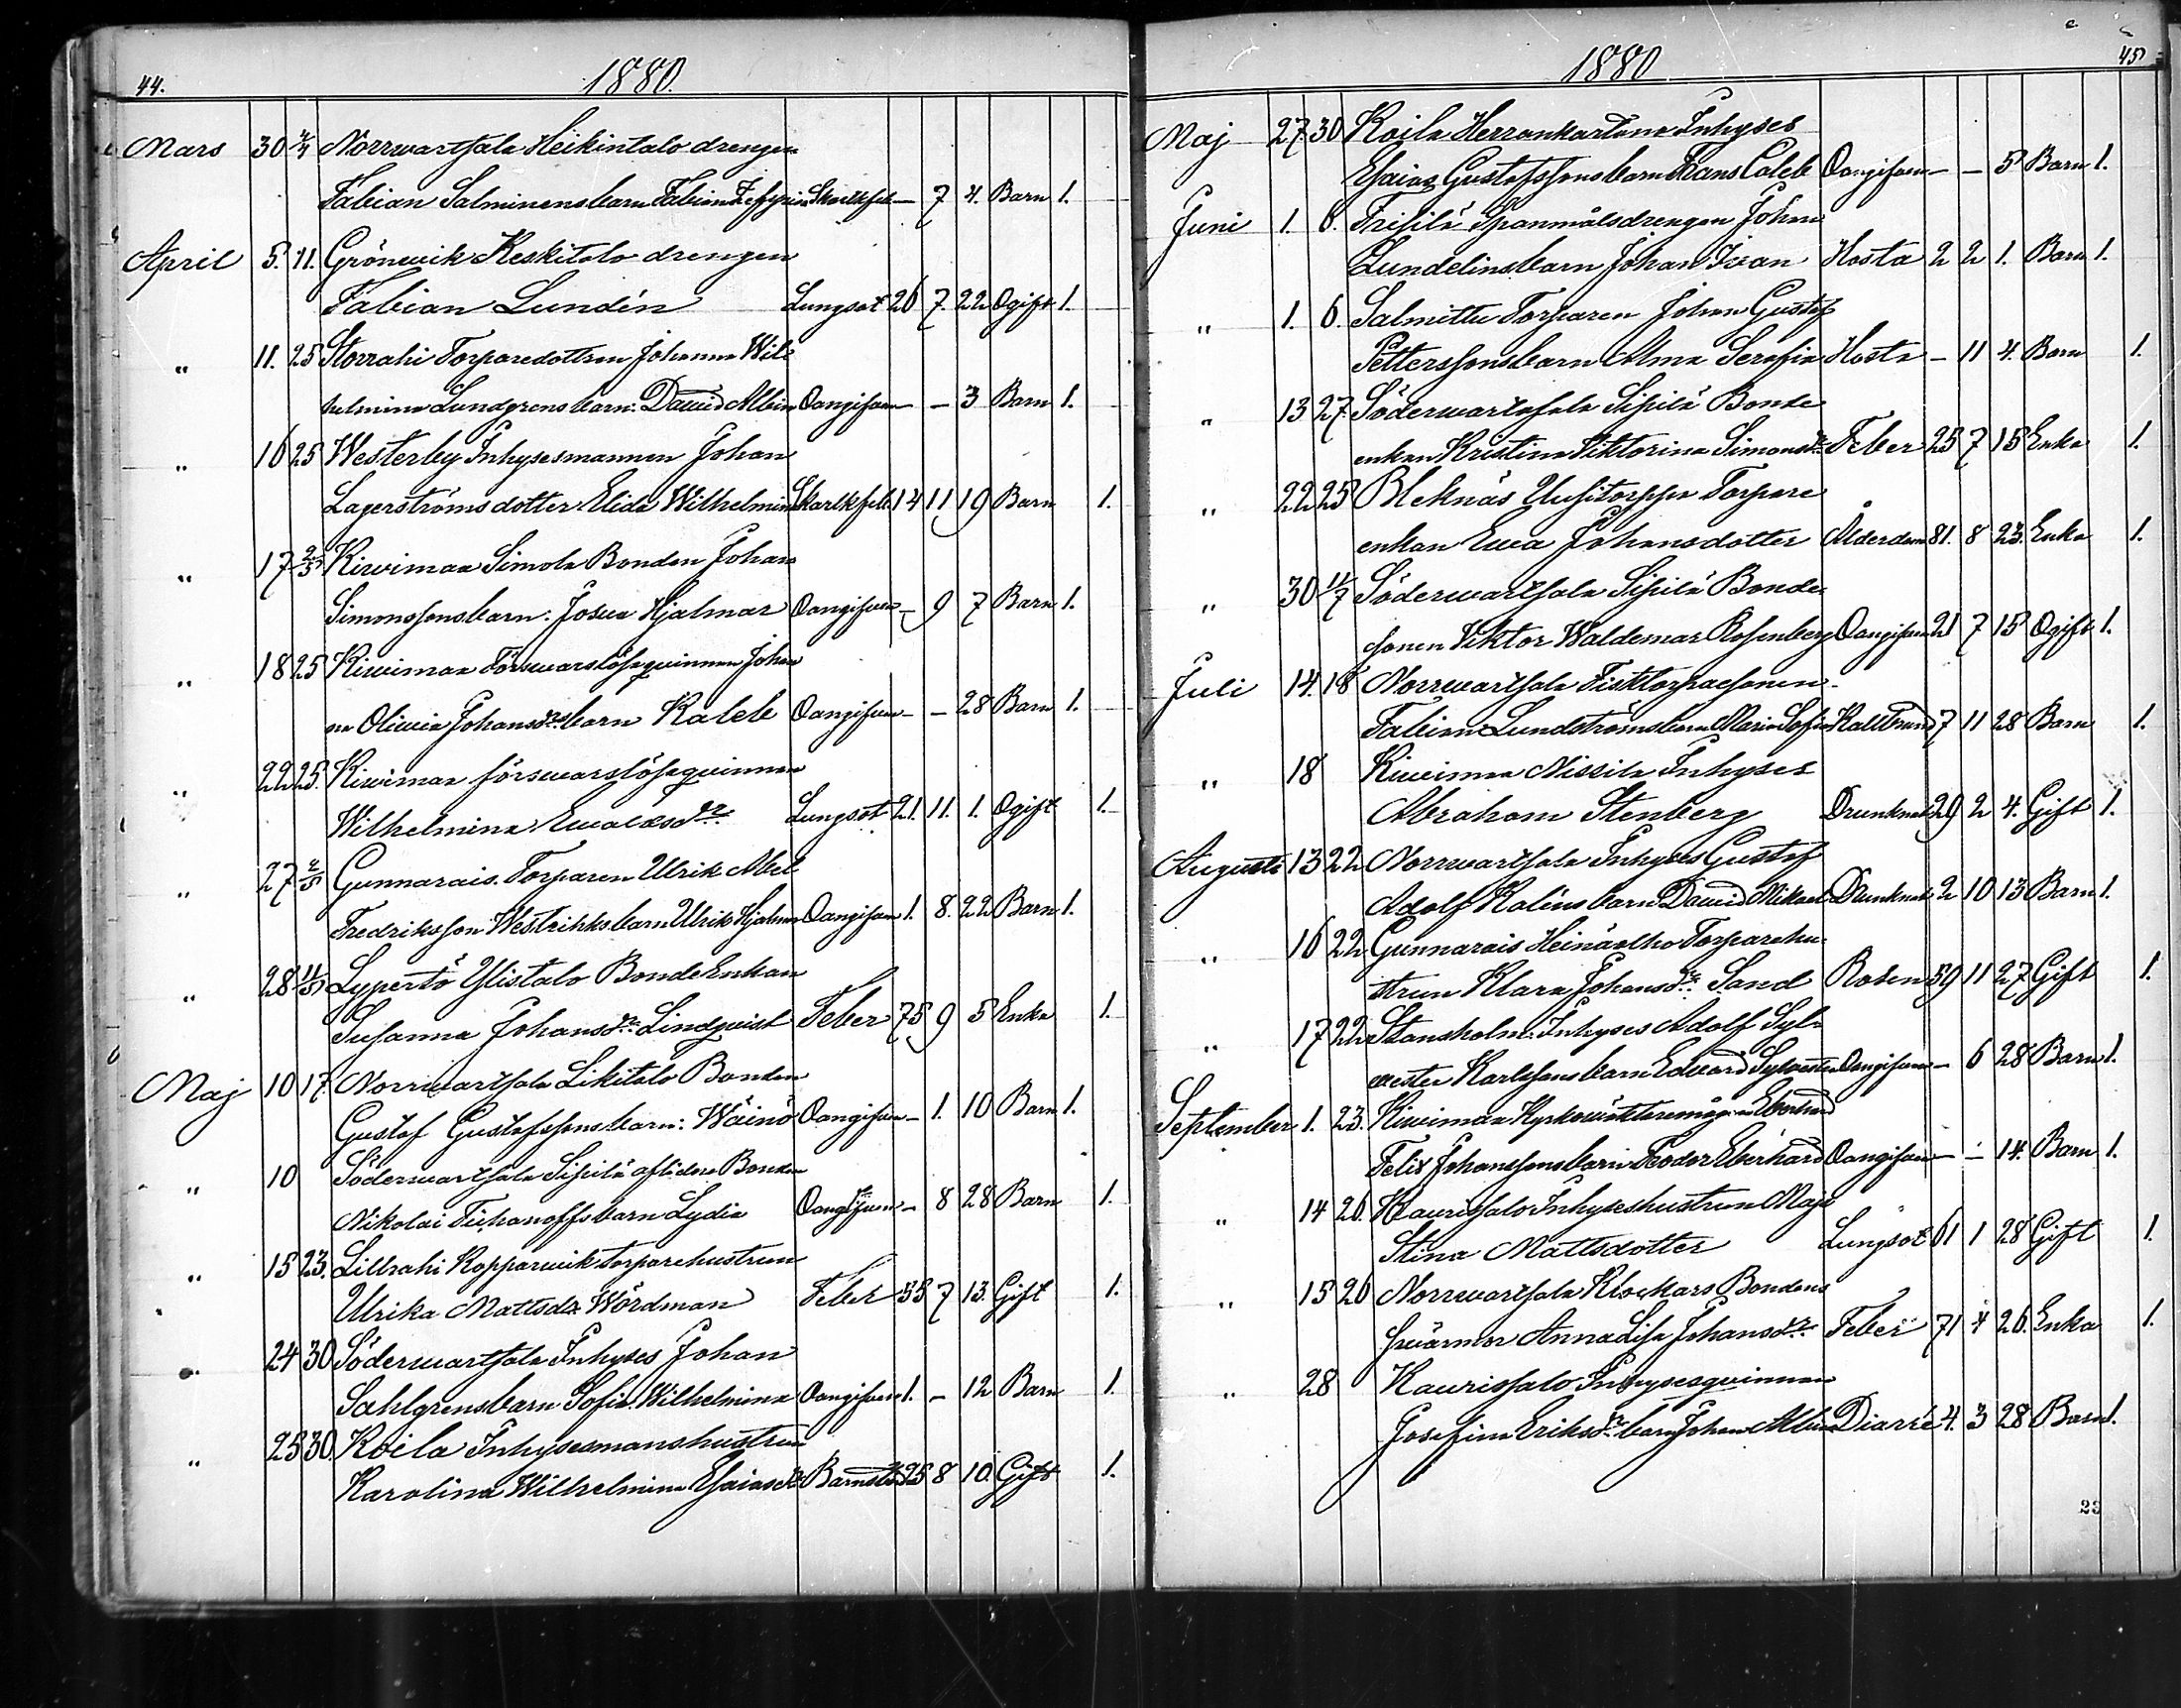 44.
1880.
Mars 30 4/4 Norrwartsala Heikintalo drengen
Fabian Salminens barn Fabian Zefyrin Skarlkfeb. — 7 4. Barn 1.
April 5. 11. Grönwik Keskitalo drengen
Fabian Lundén Lungsot 26 7. 22 Ogift 1.
" 11. 25 Storrahi Torparedottren Johanna Wil-
helmina Lundgrens barn: David Albin Oangifven — — 3 Barn 1.
" 16 25 Westerby Inhysesmannen Johan
Lagerströms dotter Elida Wilhelmina Skarlkfeb. 14 11 19 Barn 1.
" 17 2/5 Kiwimaa Simola Bonden Johan
Simonssons barn: Josua Hjalmar Oangifven — 9 7 Barn 1.
" 18 25 Kiwimaa Försvarslösaqvinnan Johan
na Oliwia Johansdrs barn Kaleb Oangifven — — 28 Barn 1.
" 22 25. Kiwimaa försvarslösaqvinnan
Wilhelmina Ewaldsdr Lungsot 21. 11. 1. Ogift 1.
" 27 2/5 Gunnarais. Torparen Ulrik Abel
Fredriksson Westrihks barn Ulrik Hjalmar Oangifven 1. 8. 22 Barn 1.
" 28 11/5 Lypertö Ylistalo BondeEnkan
Susanna Johansdr Lindqvist Feber 75 9 5 Enka 1.
Maj 10 17. Norrwartsala Likitalo Bonden
Gustaf Gustafssons barn: Wäinö Oangifven — 1. 10 Barn 1.
" 10 Söderwartsala Sipilä aflidne Bonden
Nikolai Tichanoffs barn Lydia Oangifven — 8 28 Barn 1.
" 15 23. Lillrahi Kopparwik torparehustrun
Ulrika Mattsdr Wördman Feber 55 7 13. Gift 1.
" 24 30 Söderwartsala Inhyses Johan
Sahlgrens barn Sofia Wilhelmina Oangifven 1. — 12 Barn 1.
" 25 30. Koila Inhysesmanshustrun
Karolina Wilhelmina Esaiasdr Barnsbörd 25 8 10. Gift 1.
45
1880
Maj 27. 30. Koila Herrankartano Inhyses
Esaias Gustafssons barn Frans Caleb Oangifven — — 5 Barn 1.
Juni 1. 6. Friisilä Spanmålsdrengen Johan
Lundelins barn Johan Ivan Hosta 2 2 1. Barn 1.
" 1. 6. Salmittu Torparen Johan Gustaf
Petterssons barn Alma Serafia Hosta — 11 4. Barn 1.
" 13 27. Söderwartsala Sipilä Bonde
enkan Kristina Viktorina Simonsdr Feber 25 7 15 Enka 1.
" 22 25 Bleknäs Uusitorppa Torpare
enkan Ewa Johansdotter Ålderdom 81. 8 23. Enka 1.
" 30 11/7 Söderwartsala Sipilä Bonde-
sonen Viktor Waldemar Rosenberg Oangifven 21 7 15 Ogift 1.
Juli 14. 18 Norrwartsala Fisktorparsonen
Fabian Lundströms barn Maria Sofia Kallbrand 7 11 28 Barn 1.
" 18 Kiwimaa Nissila Inhyses
Abraham Stenberg Drunknat 29 2 4. Gift 1.
Augusti 13 22 Norrwartsala Inhyses Gustaf
Adolf Kaléns barn David Mikael Drunknat 2 10 13 Barn 1.
" 16 22 Gunnarais Heinäalho Torparehu-
strun Klara Johansdr Sand Rosen 59 11 27 Gift 1.
" 17 22 Stansholm: Inhyses Adolf Syl-
vester Karlssons barn Edvard Sylvester Oangifven — 6 28 Barn 1.
September 1. 23. Kiwimaa Kyrkowäktaremågen Eberhard
Felix Johanssons barn Feodor Eberhard Oangifven — — 14. Barn 1.
" 14 26. Kaurissalo Inhyseshustrun Maja
Stina Mattsdotter Lungsot 61 1 28 Gift 1.
" 15 26 Norrwartsala Klockars Bondens
svärmor Anna Lisa Johansdr Feber 71 4 26. Enka 1.
" 28 Kaurissalo Inhysesqvinnan
Josefina Eriksdr barn Johan Albin Diarré 4. 3 28 Barn 1.
23